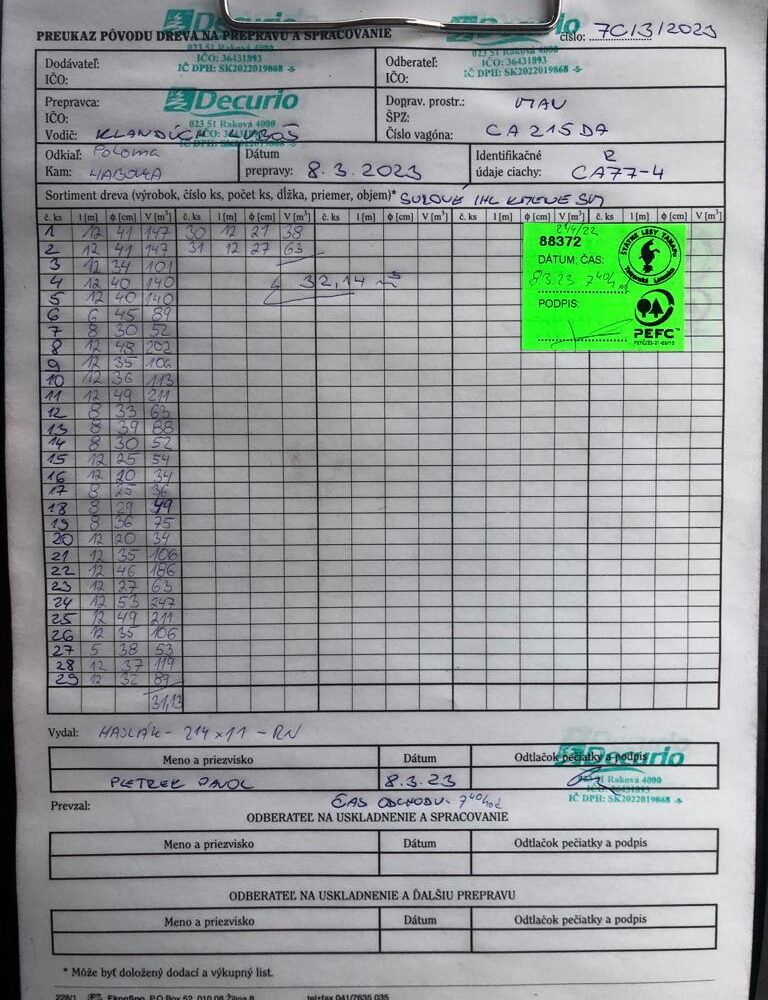 PREUKAZ PÔVODU DREVA NA PREPRAVU A SPRACOVANIE
číslo: 7C/3/2023
Decurio
023 51 Raková 4000
IČO: 36431893
IČ DPH: SK2022019868
Decurio
023 51 Raková 4000
IČO: 36431893
IČ DPH: SK2022019868
Dodávateľ:
IČO:
Odberateľ:
IČO:
Prepravca:
IČO:
Vodič: KLANDÚCH ĽUBOŠ
Decurio
023 51 Raková 4000
Doprav. prostr.: MAN
ŠPZ:
Číslo vagóna: CA215DA
Odkiaľ: Poloma
Kam: HABOVKA
Dátum
prepravy: 8.3.2023
Identifikačné R
údaje ciachy: CA77-4
Sortiment dreva (výrobok, číslo ks, počet ks, dĺžka, priemer, objem)* SUROVÉ IHL KMENE SM
č. ks l [m] ϕ [cm] V [m³] č. ks l [m] ϕ [cm] V [m³] č. ks l [m] ϕ [cm] V [m³] č. ks l [m] ϕ [cm] V [m³] č. ks l [m] ϕ [cm] V [m³]
1 12 41 147 30 12 21 38
2 12 41 147 31 12 27 63
3 12 34 101
4 12 40 140 32,14 m³
5 12 40 140
6 6 45 89
7 8 30 52
8 12 48 202
9 12 35 106
10 12 36 113
11 12 49 211
12 8 33 63
13 8 39 88
14 8 30 52
15 12 25 54
16 12 20 34
17 8 25 36
18 8 29 49
19 8 36 75
20 12 20 34
21 12 35 106
22 12 46 186
23 12 27 63
24 12 53 247
25 12 49 211
26 12 35 106
27 5 38 53
28 12 37 119
29 12 32 89
31,13
214/22
88372
DÁTUM, ČAS:
8.3.23 7⁴⁰h
PODPIS:
ŠTÁTNE LESY TANAPu
Tatranská Lomnica
PEFC™
Vydal: HAJLÁK - 214x11 - RN
Meno a priezvisko Dátum Odtlačok pečiatky a podpis
PIETREK PAVOL 8.3.23
Decurio
023 51 Raková 4000
IČ DPH: SK2022019868
Prevzal: ČAS ODCHODU: 7⁴⁰hod
ODBERATEĽ NA USKLADNENIE A SPRACOVANIE
Meno a priezvisko Dátum Odtlačok pečiatky a podpis
ODBERATEĽ NA USKLADNENIE A ĎALŠIU PREPRAVU
Meno a priezvisko Dátum Odtlačok pečiatky a podpis
* Môže byť doložený dodací a výkupný list.
228/1 EkonSpo, P.O.Box 52, 010 08 Žilina 8 tel/fax 041/7635 035